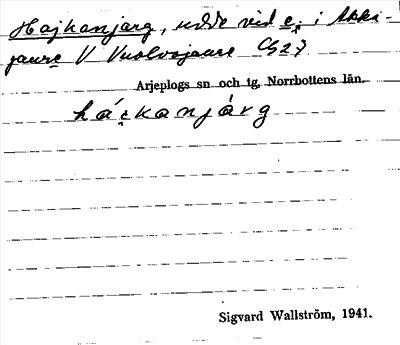 Hajkanjarg, udde vid e. i Akka-
jaure V Vuolvojaure Cg27
Arjeplogs sn och tg, Norrbottens län.
háikanjárg
Sigvard Wallström, 1941.